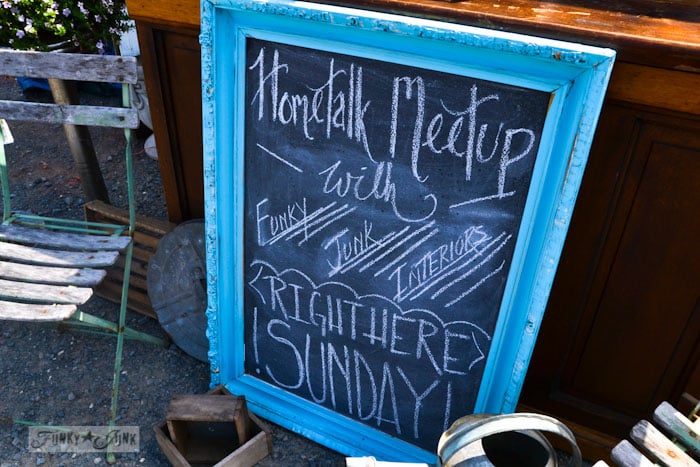 Hometalk Meetup
with
FUNKY JUNK INTERIORS
RIGHT HERE
! SUNDAY!
FUNKY★JUNK